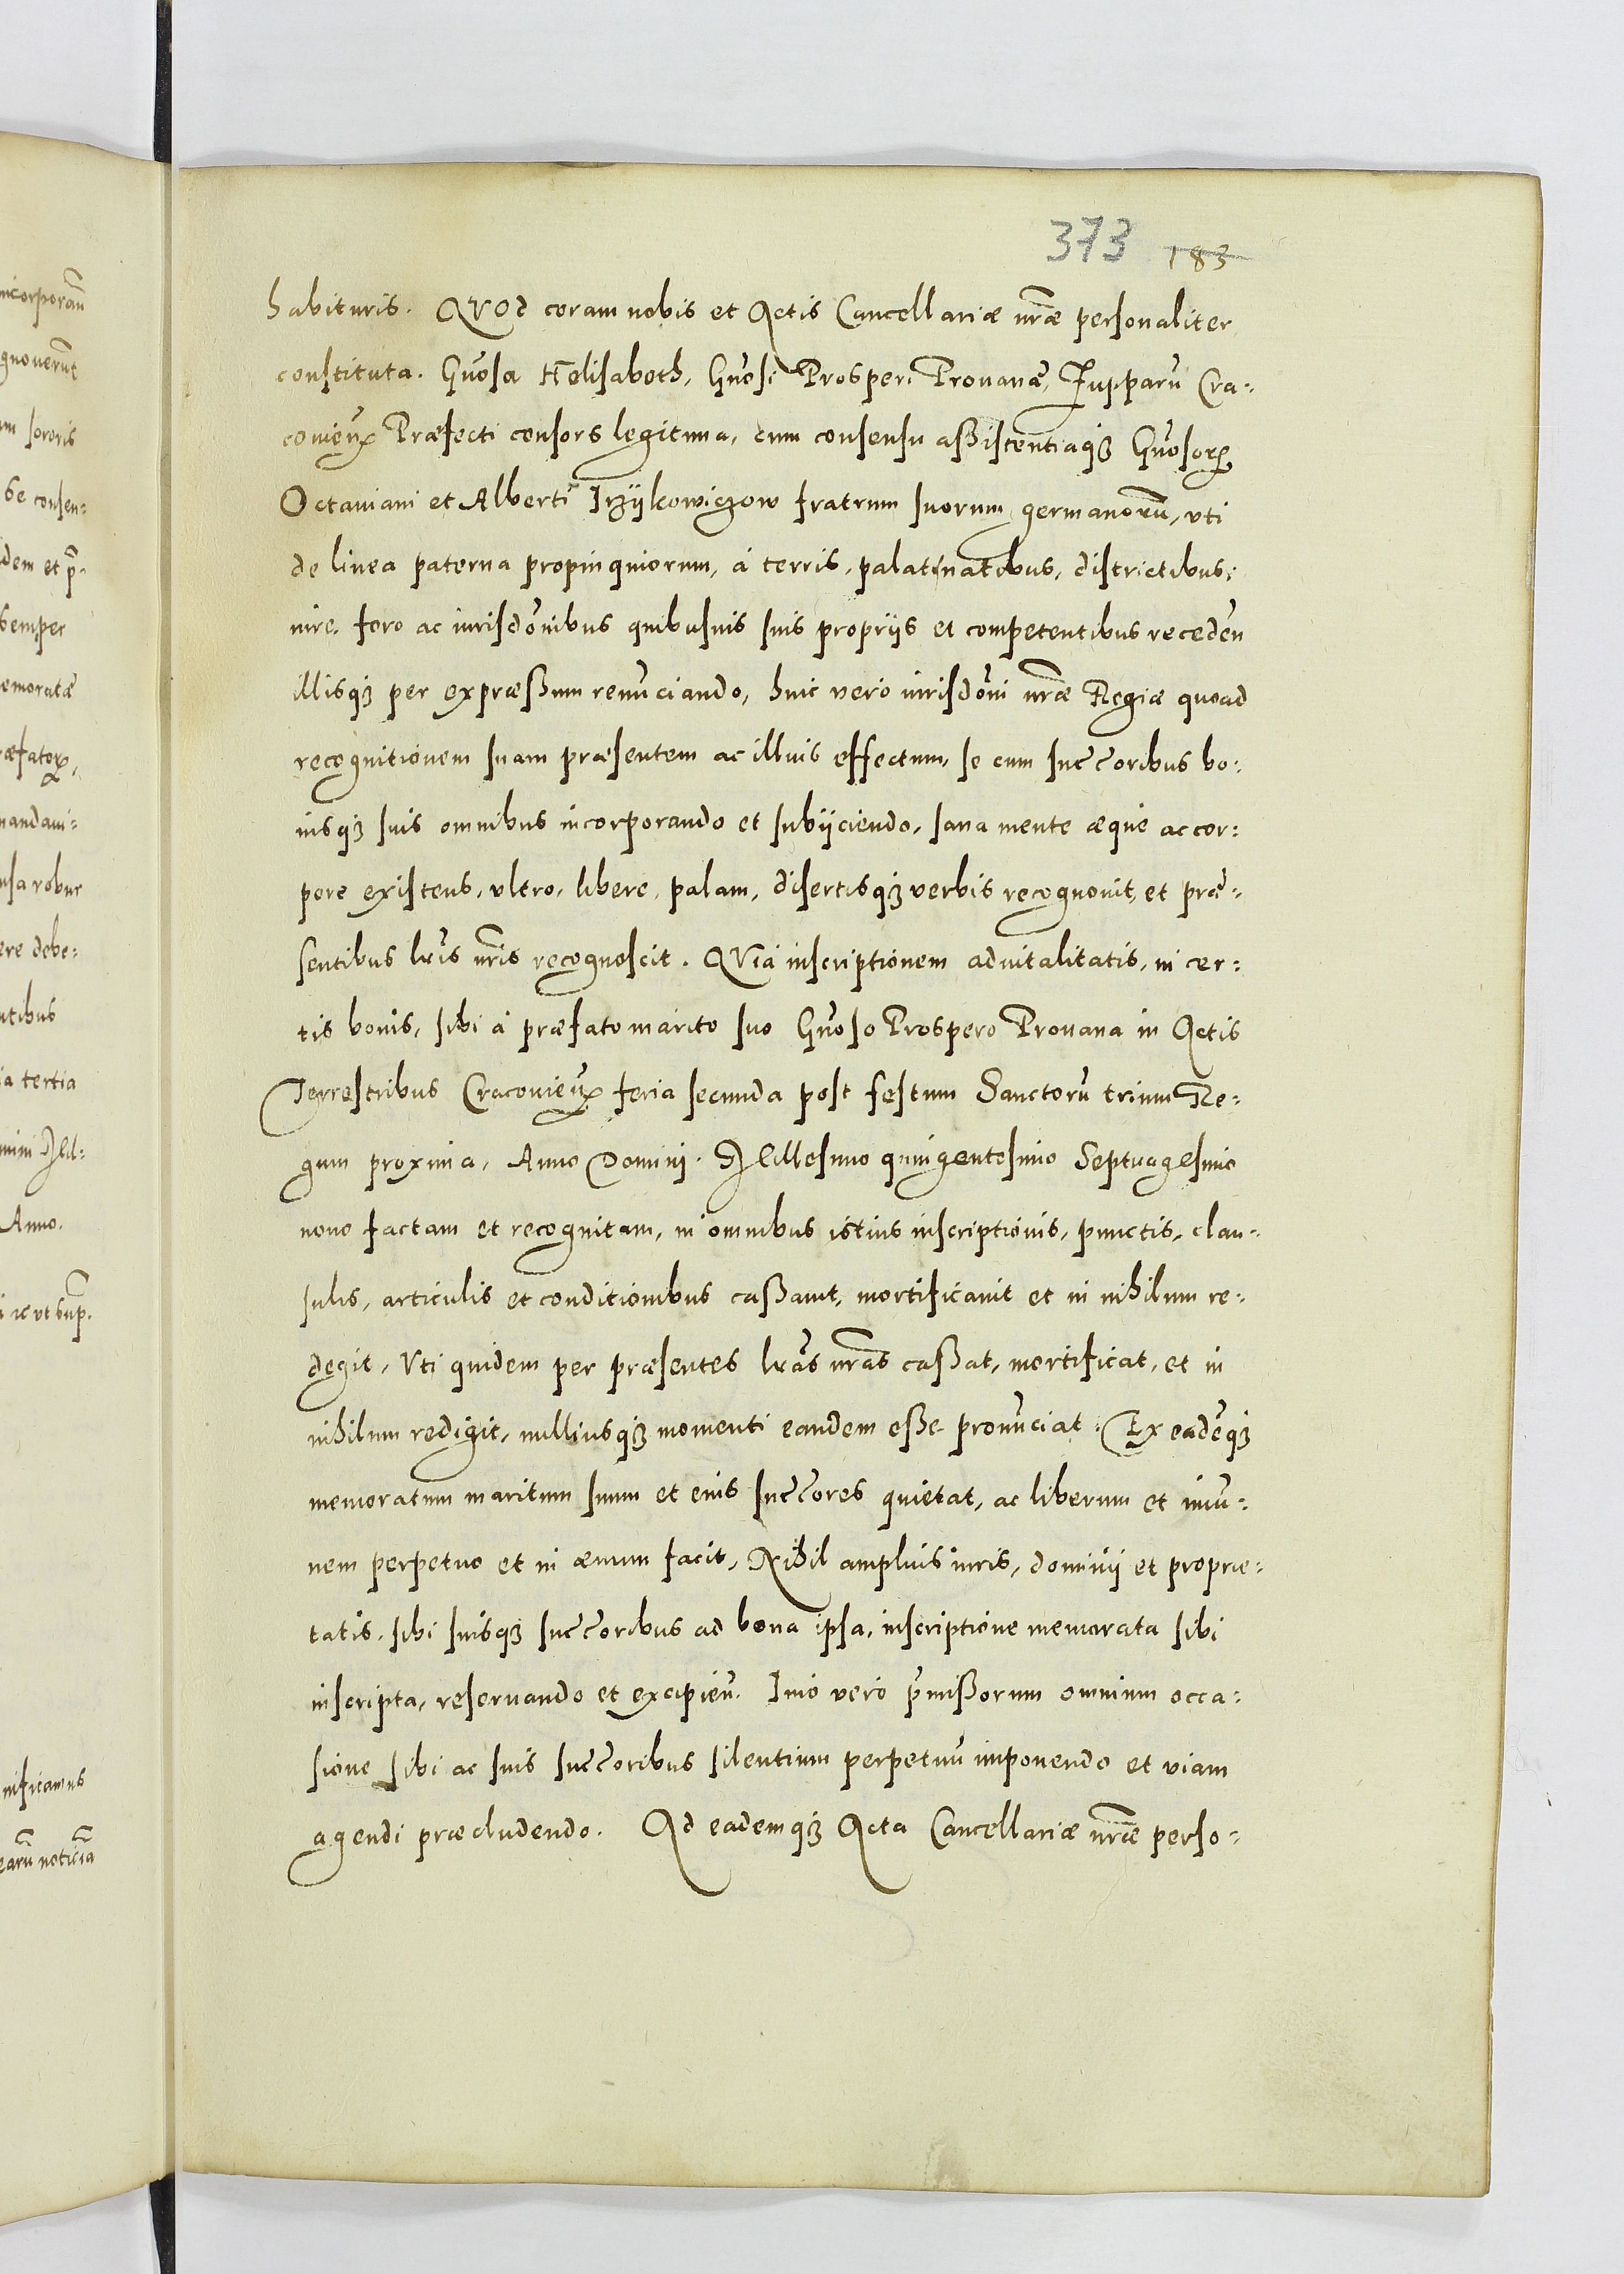 373 183
habituris. QVOd coram nobis et Actis Cancellariæ nr̃æ personaliter
constituta. Gñosa Helisabeth, Gñosi Prosperi Prouanæ, Zupparũ Cra-
couieñ Præfecti consors legitima, cum consensu assistentiaq3 Gñosorꝝ
Octauiani et Alberti Irzÿkowiczow fratrum suorum germanorũ, vti
de linea paterna propinquiorum, à terris, palatinatibus, districtibus,
iure, foro ac iurisdõnibus quibusuis suis proprijs et competentibus receden̄
illisq3 per expræssum renũciando, huic vero iurisdõni nr̃æ Regiæ quoad
recognitionem suam præsentem ac illius effectum, se cum succ̃oribus bo-
nisq3 suis omnibus incorporando et subijciendo, sana mente æque ac cor-
pore existens, vltro, libere, palam, disertisq3 verbis recognouit, et præ-
sentibus lr̃is nr̃is recognoscit. QVia inscriptionem aduitalitatis, in cer-
tis bonis, sibi à præfato marito suo Gñoso Prospero Prouana in Actis
Terrestribus Cracouieñ feria secunda post festum Sanctorũ trium Re-
gum proxima, Anno Domini. Millesimo quingentesimo Septuagesimo
nono factam et recognitam, in omnibus istius inscriptionis, punctis, clau-
sulis, articulis et conditionibus cassauit, mortificauit et in nihilum re-
degit, Vti quidem per præsentes lr̃as nr̃as cassat, mortificat, et in
nihilum redigit, nulliusq3 momenti eandem esse pronũciat. Ex eadẽq3
memoratum maritum suum et eius succ̃ores quietat, ac liberum et im̃u-
nem perpetuo et in æuum facit, Nihil amplius iuris, dominij et proprie-
tatis, sibi suisq3 succ̃oribus ad bona ipsa, inscriptione memorata sibi
inscripta, reseruando et excipieñ. Imo vero p̃missorum omnium occa-
sione sibi ac suis succ̃oribus silentium perpetuũ imponendo et viam
agendi præcludendo. Ad eademq3 Acta Cancellariæ nr̃æ perso-